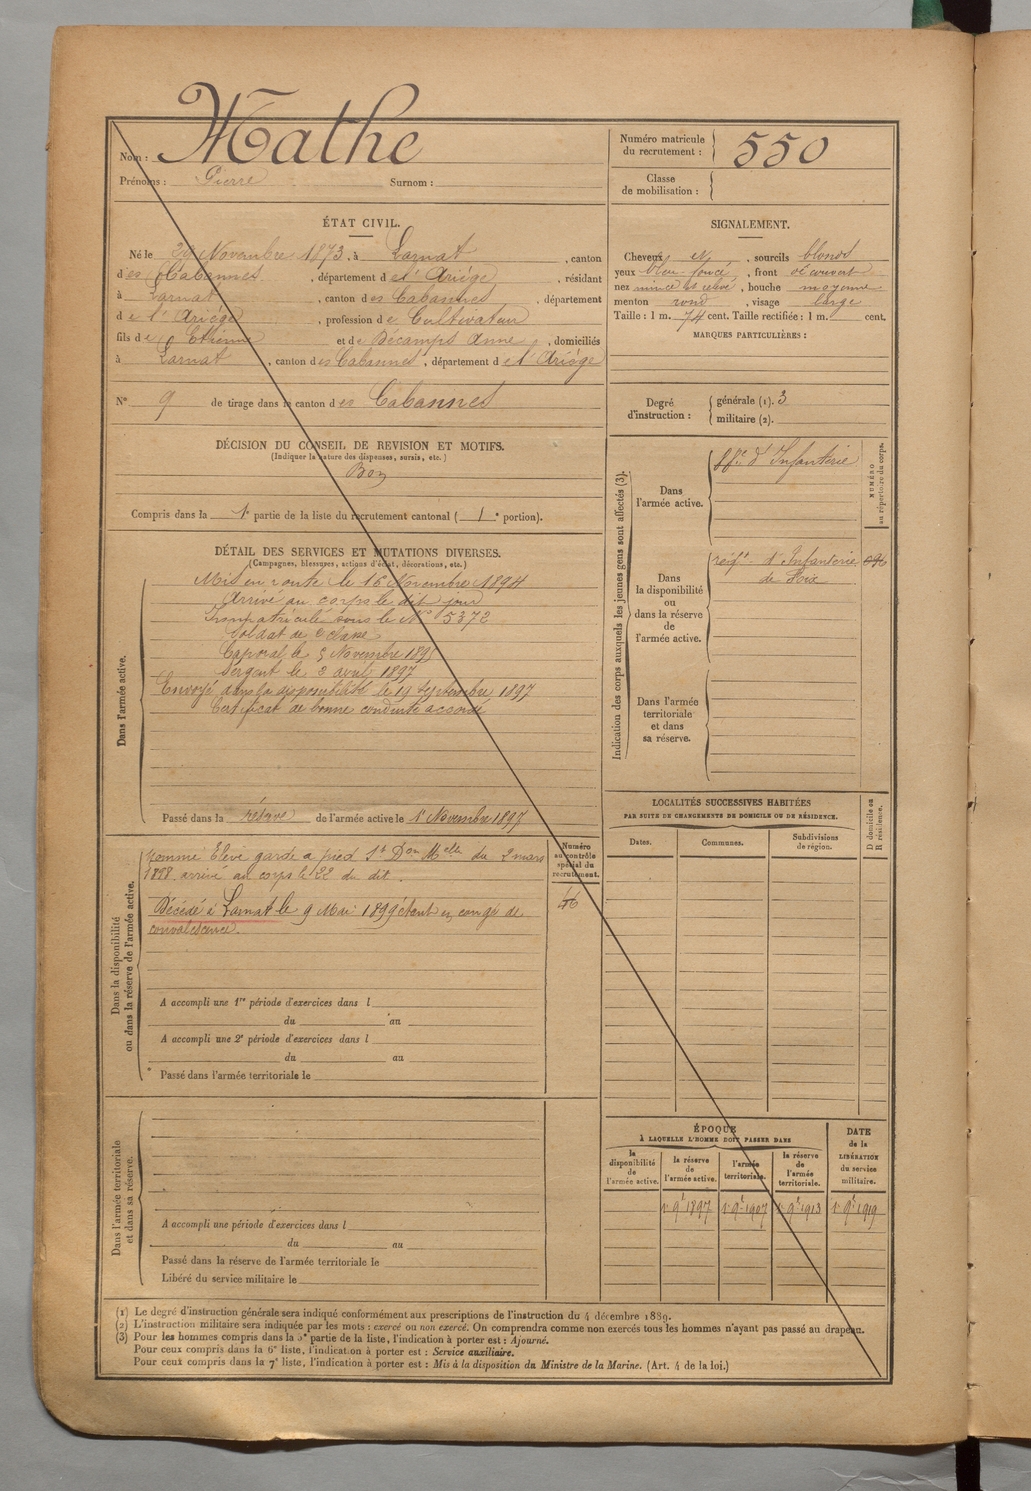 Nom : Mathe
Prénoms : Pierre Surnom :
Numéro matricule du recrutement : 550
Classe de mobilisation :
ÉTAT CIVIL.
Né le 29 Novembre 1873, à Larnat, canton
des Cabannes, département de l'Ariège, résidant
à Larnat, canton des Cabannes, département
de l'Ariège, profession de Cultivateur
fils de Etienne et de Décamps Anne, domiciliés
à Larnat, canton des Cabannes, département de l'Ariège
N° 9 de tirage dans le canton des Cabannes
SIGNALEMENT.
Cheveux et, sourcils blonds
yeux bleu foncé, front découvert
nez mince et élevé, bouche moyenne
menton rond, visage large
Taille : 1 m. 74 cent. Taille rectifiée : 1 m. cent.
MARQUES PARTICULIÈRES :
Degré d'instruction : générale (1). 3
militaire (2).
DÉCISION DU CONSEIL DE REVISION ET MOTIFS.
(Indiquer la nature des dispenses, sursis, etc.)
Bon
Compris dans la 1e partie de la liste du recrutement cantonal ( 1e portion).
DÉTAIL DES SERVICES ET MUTATIONS DIVERSES.
(Campagnes, blessures, actions d'éclat, décorations, etc.)
Dans l'armée active.
Mis en route le 16 Novembre 1894
Arrivé au corps le dit jour
Immatriculé sous le N° 5372
Soldat de 2e classe
Caporal le 5 Novembre 1895
Sergent le 2 avril 1897
Envoyé dans la disponibilité le 19 Septembre 1897
Certificat de bonne conduite accordé
Passé dans la réserve de l'armée active le 1r Novembre 1897
Indication des corps auxquels les jeunes gens sont affectés (3).
NUMÉRO au répertoire du corps.
Dans l'armée active.
d'Infanterie
Dans la disponibilité ou dans la réserve de l'armée active.
régt d'Infanterie
de Foix
Dans l'armée territoriale et dans sa réserve.
LOCALITÉS SUCCESSIVES HABITÉES
PAR SUITE DE CHANGEMENTS DE DOMICILE OU DE RÉSIDENCE.
Dates. Communes. Subdivisions de région. D domicile ou R résidence.
Dans la disponibilité ou dans la réserve de l'armée active.
Numéro au contrôle spécial du recrutement.
46
Nommé Élève garde à pied 1t Don Melle du 2 mars
1898 arrivé au corps le 22 du dit.
Décédé à Larnat le 9 Mai 1899 étant en congé de
convalescence.
A accompli une 1re période d'exercices dans l
du au
A accompli une 2e période d'exercices dans l
du au
Passé dans l'armée territoriale le
Dans l'armée territoriale et dans sa réserve.
A accompli une période d'exercices dans l
du au
Passé dans la réserve de l'armée territoriale le
Libéré du service militaire le
ÉPOQUE
À LAQUELLE L'HOMME DOIT PASSER DANS
la disponibilité de l'armée active.
la réserve de l'armée active.
l'armée territoriale.
la réserve de l'armée territoriale.
DATE de la LIBÉRATION du service militaire.
1r 9bre 1897 1r 9bre 1907 1r 9bre 1913 1r 9bre 1919
(1) Le degré d'instruction générale sera indiqué conformément aux prescriptions de l'instruction du 4 décembre 1889.
(2) L'instruction militaire sera indiquée par les mots : exercé ou non exercé. On comprendra comme non exercés tous les hommes n'ayant pas passé au drapeau.
(3) Pour les hommes compris dans la 5e partie de la liste, l'indication à porter est : Ajourné.
Pour ceux compris dans la 6e liste, l'indication à porter est : Service auxiliaire.
Pour ceux compris dans la 7e liste, l'indication à porter est : Mis à la disposition du Ministre de la Marine. (Art. 4 de la loi.)